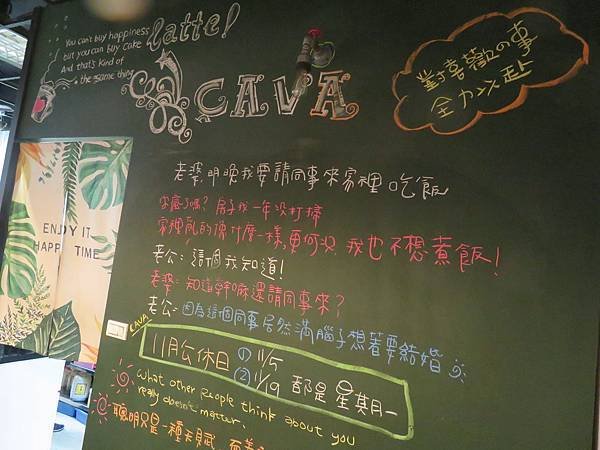 You can't buy happiness
but you can buy cake
And that's kind of
the same thing
latte!
ÇAVA
對喜歡の事
全力以赴
老婆,明晚我要請同事來家裡吃飯
你瘋了嗎? 房子我一年沒打掃
家裡亂的像什麼一樣,更何況 我也不想煮飯!
老公:這個我知道!
老婆:知道幹嘛還請同事來?
老公:因為這個同事居然滿腦子想著要結婚
CAVA
11月公休日 ① 11/5
② 11/19 都是星期一
What other people think about you
really doesn't matter.
聰明只是一種天賦,而善
ENJOY IT
HAPPY TIME